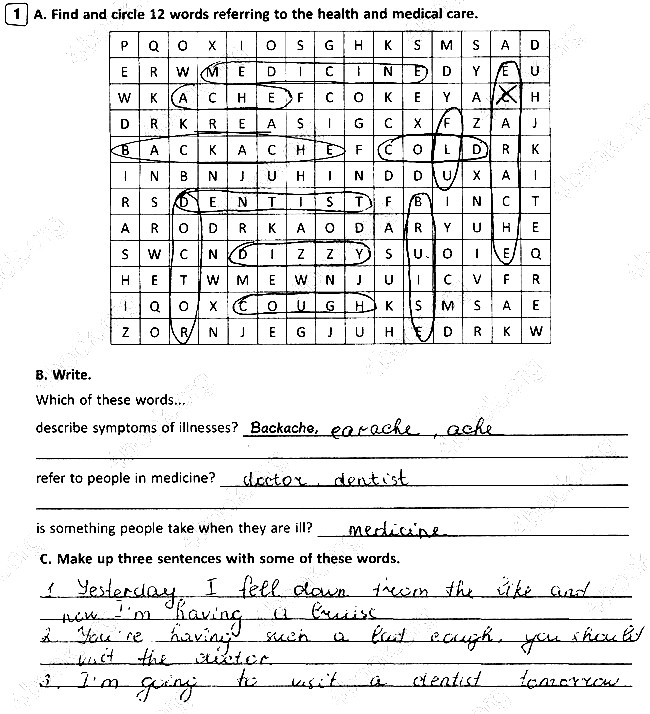 1 A. Find and circle 12 words referring to the health and medical care.
P Q O X I O S G H K S M S A D
E R W M E D I C I N E D Y E U
W K A C H E F C O K E Y A H
D R K R E A S I G C X F Z A J
B A C K A C H E F C O L D R K
I N B N J U H I N D D U X A I
R S D E N T I S T F B I N C T
A R O D R K A O D A R Y U H E
S W C N D I Z Z Y S U O I E Q
H E T W M E W N J U I C V F R
I Q O X C O U G H K S M S A E
Z O R N J E G J U H E D R K W
B. Write.
Which of these words...
describe symptoms of illnesses? Backache, earache, ache
refer to people in medicine? doctor, dentist
is something people take when they are ill? medicine
C. Make up three sentences with some of these words.
1. Yesterday I fell down from the and
now I'm having a bruise
2. You're having such a bad cough, you should
visit the doctor
3. I'm going to visit a dentist tomorrow